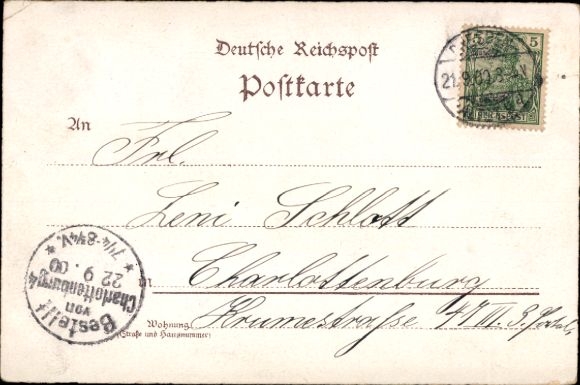 Deutsche Reichspost
Postkarte
5
DRESDEN
21.9.00.
REICHSPOST
An
Frl.
Leni Schlott
in Charlottenburg
Krumestrasse 47 III. 3.
Wohnung
(Straße und Hausnummer)
Bestellt
von
Charlottenburg 4
22.9.00
7¼-8¼V.